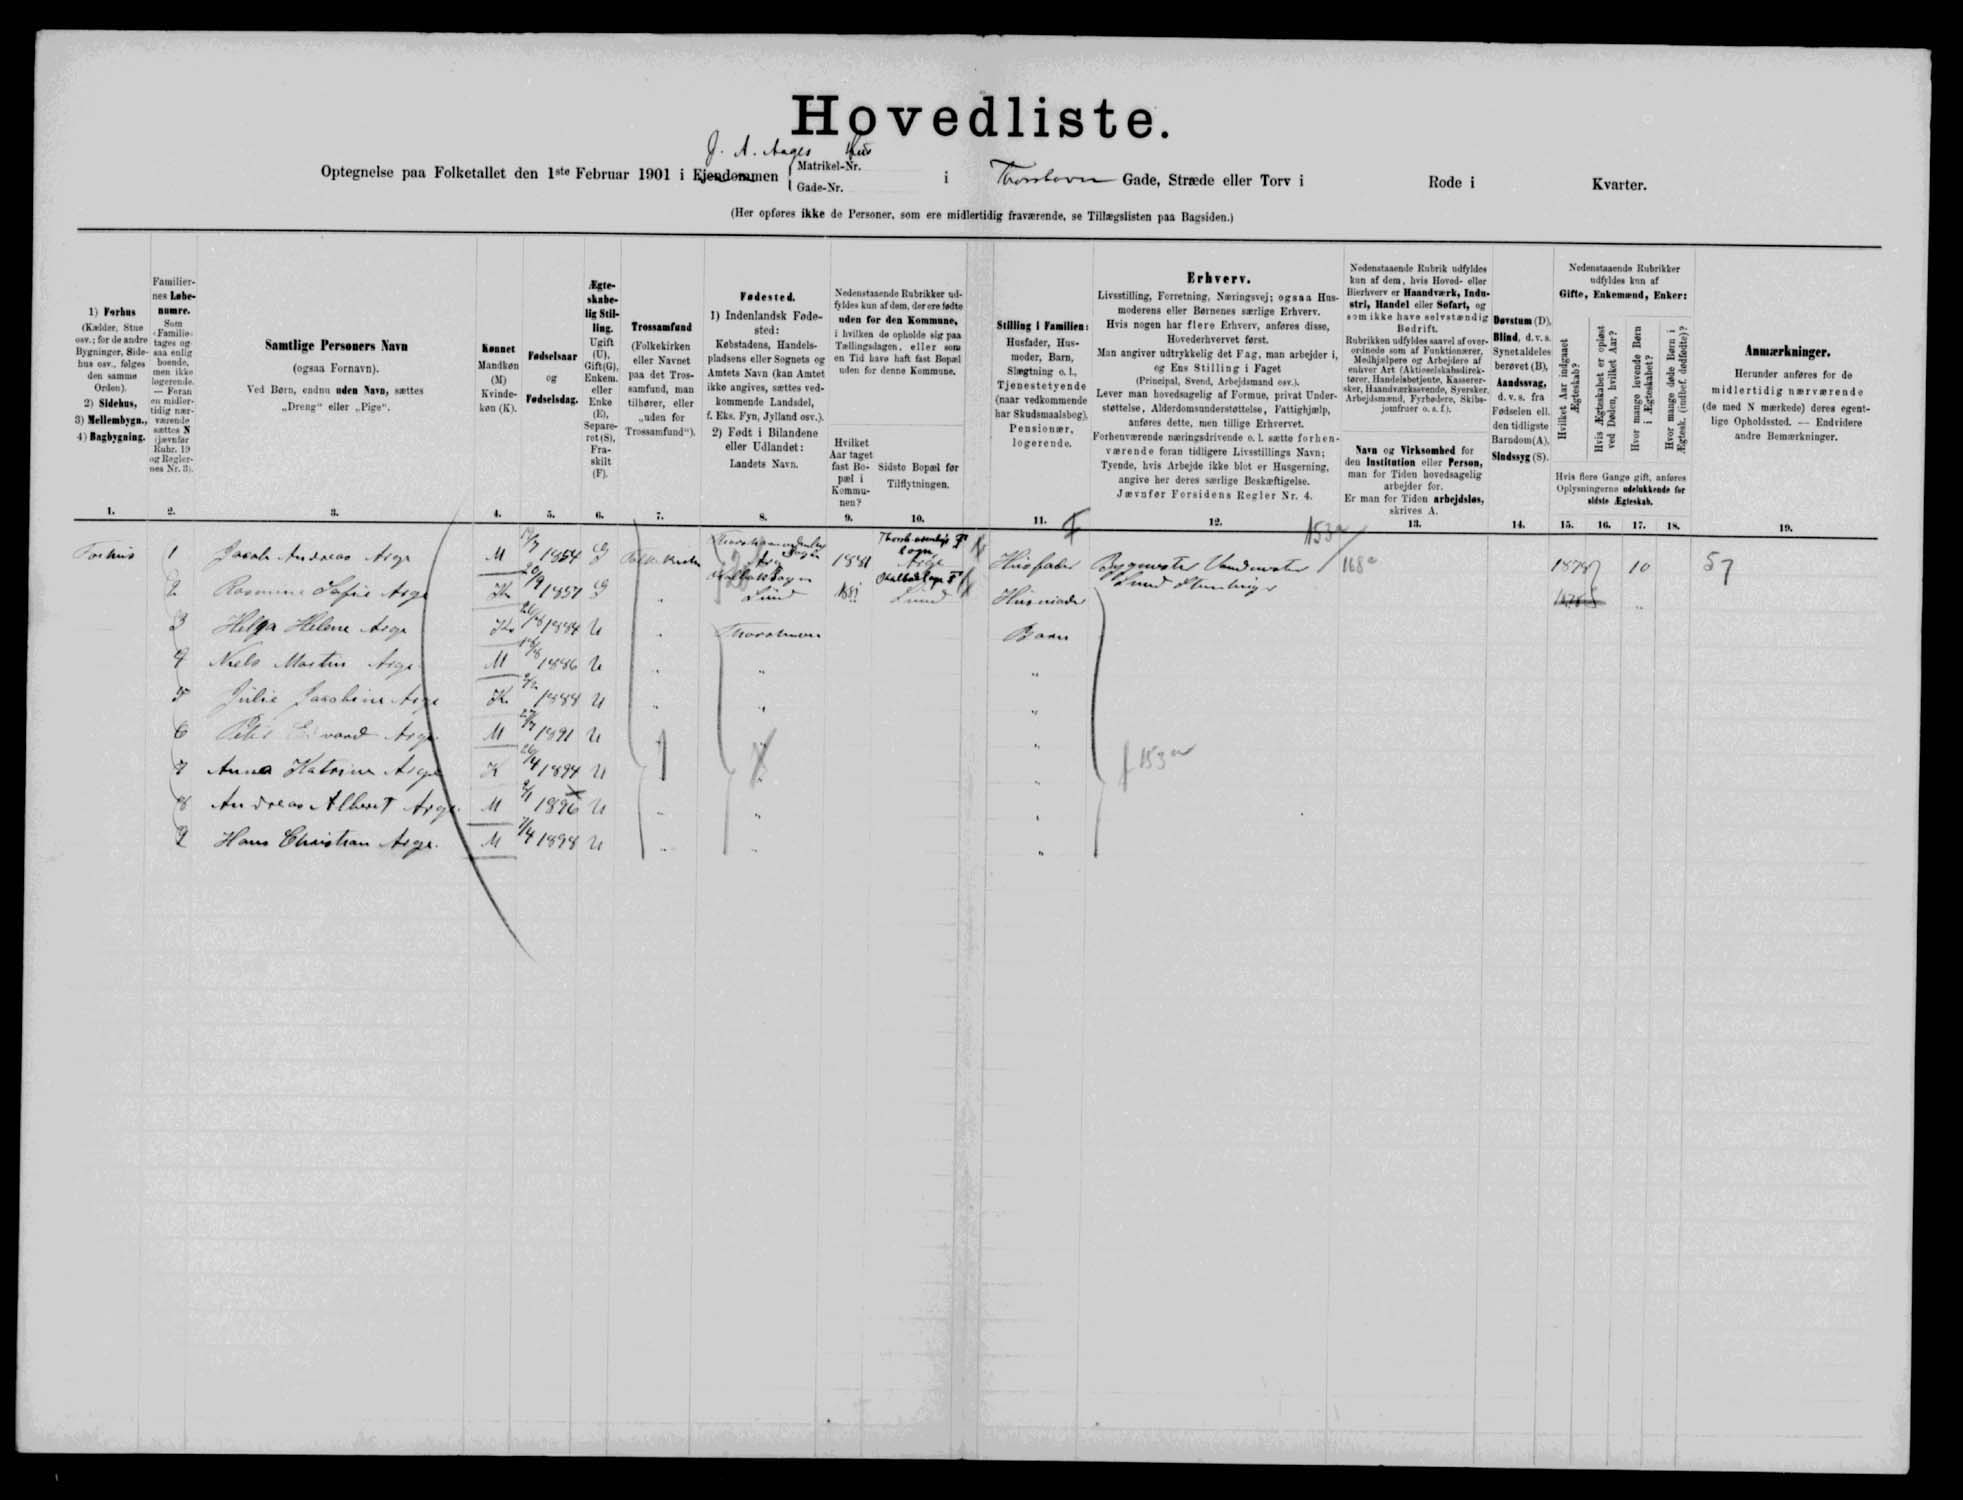 Hovedliste.
J. A. Aages Hus
Optegnelse paa Folketallet den 1ste Februar 1901 i Ejendommen { Matrikel-Nr. Gade-Nr. i Thorshavn Gade, Stræde eller Torv i Rode i Kvarter.
(Her opføres ikke de Personer, som ere midlertidig fraværende, se Tillægslisten paa Bagsiden.)
1) Forhus
(Kælder, Stue
osv.; for de andre
Bygninger, Side-
hus osv., følges
den samme
Orden).
2) Sidehus,
3) Mellembygn.,
4) Bagbygning.
Familier-
nes Løbe-
numre.
Som
Familie
tages og-
saa enlig
boende,
men ikke
logerende.
— Foran
en midler-
tidig nær-
værende
sættes N
(jævnfør
Rubr. 19
og Regler-
nes Nr. 3).
Samtlige Personers Navn
(ogsaa Fornavn).
Ved Børn, endnu uden Navn, sættes
„Dreng“ eller „Pige“.
Kønnet
Mandkøn
(M)
Kvinde-
køn (K).
Fødselsaar
og
Fødselsdag.
Ægte-
skabe-
lig Stil-
ling.
Ugift
(U),
Gift(G),
Enkem.
eller
Enke
(E),
Separe-
ret (S),
Fra-
skilt
(F).
Trossamfund
(Folkekirken
eller Navnet
paa det Tros-
samfund, man
tilhører, eller
„uden for
Trossamfund“).
Fødested.
1) Indenlandsk Føde-
sted:
Købstadens, Handels-
pladsens eller Sognets og
Amtets Navn (kan Amtet
ikke angives, sættes ved-
kommende Landsdel,
f. Eks. Fyn, Jylland osv.).
2) Født i Bilandene
eller Udlandet:
Landets Navn.
Nedenstaaende Rubrikker ud-
fyldes kun af dem, der ere fødte
uden for den Kommune,
i hvilken de opholde sig paa
Tællingsdagen, eller som
en Tid have haft fast Bopæl
uden for denne Kommune.
Hvilket
Aar taget
fast Bo-
pæl i
Kommu-
nen?
Sidste Bopæl før
Tilflytningen.
Stilling i Familien:
Husfader, Hus-
moder, Barn,
Slægtning o. l.,
Tjenestetyende
(naar vedkommende
har Skudsmaalsbog),
Pensionær,
logerende.
Erhverv.
Livsstilling, Forretning, Næringsvej; ogsaa Hus-
moderens eller Børnenes særlige Erhverv.
Hvis nogen har flere Erhverv, anføres disse,
Hovederhvervet først.
Man angiver udtrykkelig det Fag, man arbejder i,
og Ens Stilling i Faget
(Principal, Svend, Arbejdsmand osv.).
Lever man hovedsagelig af Formue, privat Under-
støttelse, Alderdomsunderstøttelse, Fattighjælp,
anføres dette, men tillige Erhvervet.
Forhenværende næringsdrivende o. l. sætte forhen-
værende foran tidligere Livsstillings Navn;
Tyende, hvis Arbejde ikke blot er Husgerning,
angive her deres særlige Beskæftigelse.
Jævnfør Forsidens Regler Nr. 4.
Nedenstaaende Rubrik udfyldes
kun af dem, hvis Hoved- eller
Bierhverv er Haandværk, Indu-
stri, Handel eller Søfart, og
som ikke have selvstændig
Bedrift.
Rubrikken udfyldes saavel af over-
ordnede som af Funktionærer,
Medhjælpere og Arbejdere af
enhver Art (Aktieselskabsdirek-
tører, Handelsbetjente, Kasserer-
sker, Haandværkssvende, Syersker,
Arbejdsmænd, Fyrbødere, Skibs-
jomfruer o. s. f.).
Navn og Virksomhed for
den Institution eller Person,
man for Tiden hovedsagelig
arbejder for.
Er man for Tiden arbejdsløs,
skrives A.
Døvstum (D),
Blind, d. v. s.
Synet aldeles
berøvet (B),
Aandssvag,
d. v. s. fra
Fødselen ell.
den tidligste
Barndom (A),
Sindssyg (S).
Nedenstaaende Rubrikker
udfyldes kun af
Gifte, Enkemænd, Enker:
Hvilket Aar indgaaet Ægteskab?
Hvis Ægteskabet er opløst ved Døden, hvilket Aar?
Hvor mange levende Børn i Ægteskabet?
Hvor mange døde Børn i Ægtesk. (indbef. dødfødte)?
Hvis flere Gange gift, anføres
Oplysningerne udelukkende for
sidste Ægteskab.
Anmærkninger.
Herunder anføres for de
midlertidig nærværende
(de med N mærkede) deres egent-
lige Opholdssted. — Endvidere
andre Bemærkninger.
1. 2. 3. 4. 5. 6. 7. 8. 9. 10. 11. 12. 13. 14. 15. 16. 17. 18. 19.
Forhus 1 Jacob Andreas Arge M 1854 G 1881 Arge Husfader Bygmester 1878 10 57
2 Rasmine Sofie Arge K 1857 G " Lund 1881 Lund Husmoder
3 Helga Helene Arge K 1884 U " Thorshavn Barn
4 Niels Martin Arge M 1886 U " " "
5 Julie Jacobine Arge K 1888 U " " "
6 Arge M 1891 U "
7 Anna Katrine Arge K 26/4 1894 U " 153
8 Andreas Albert Arge M 1896 U " " "
9 Hans Christian Arge. M 7/4 1898 U " " "